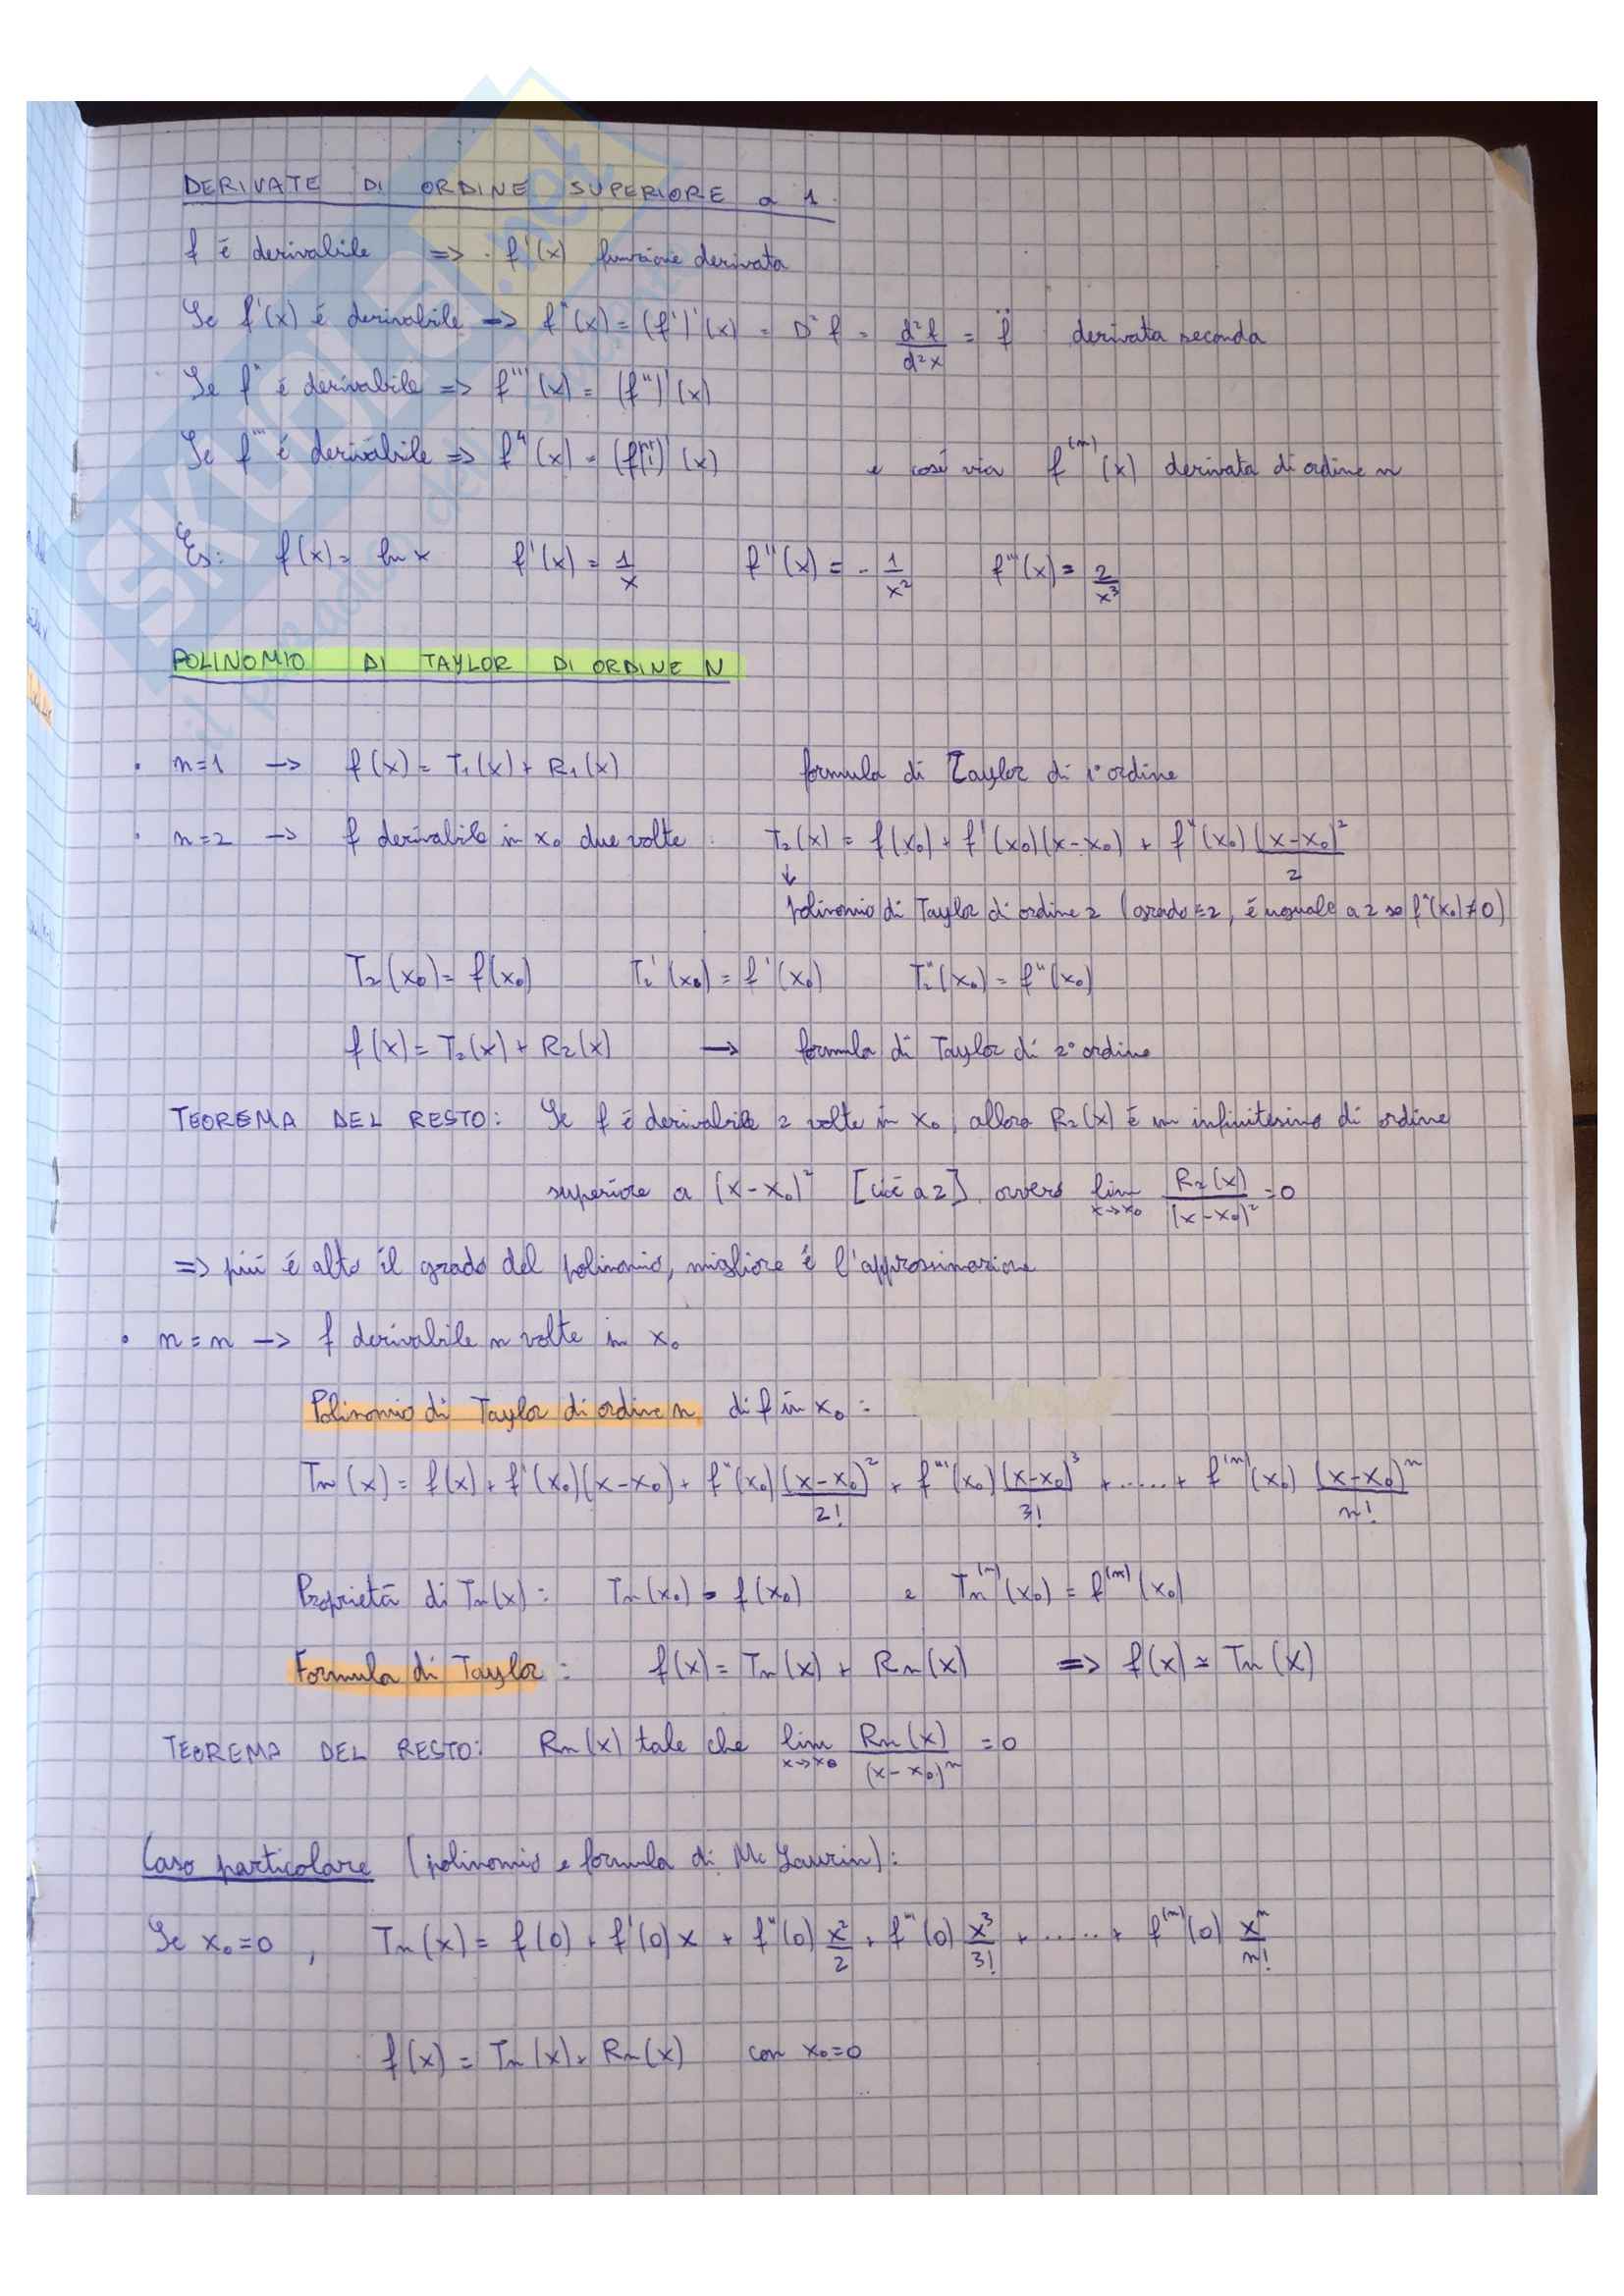 DERIVATE DI ORDINE SUPERIORE a 1
f è derivabile => f'(x) funzione derivata
Se f'(x) è derivabile => f"(x) = (f')'(x) = D²f = d²f/d²x = f̈ derivata seconda
Se f" è derivabile => f'''(x) = (f")'(x)
Se f''' è derivabile => f⁴(x) = (f''')'(x) e così via f⁽ⁿ⁾(x) derivata di ordine n
Es: f(x) = ln x f'(x) = 1/x f"(x) = - 1/x² f'''(x) = 2/x³
POLINOMIO DI TAYLOR DI ORDINE N
• n=1 -> f(x) = T₁(x) + R₁(x) formula di Taylor di 1° ordine
• n=2 -> f derivabile in x₀ due volte T₂(x) = f(x₀) + f'(x₀)(x-x₀) + f"(x₀) (x-x₀)²/2
↓
polinomio di Taylor di ordine 2 (grado ≤2, è uguale a 2 se f"(x₀)≠0)
T₂(x₀) = f(x₀) T₂'(x₀) = f'(x₀) T₂"(x₀) = f"(x₀)
f(x) = T₂(x) + R₂(x) -> formula di Taylor di 2° ordine
TEOREMA DEL RESTO: Se f è derivabile 2 volte in x₀, allora R₂(x) è un infinitesimo di ordine
superiore a (x-x₀)² [cioè a 2] ovvero lim x->x₀ R₂(x)/(x-x₀)² = 0
=> più è alto il grado del polinomio, migliore è l'approssimazione
• n=n -> f derivabile n volte in x₀
Polinomio di Taylor di ordine n di f in x₀:
Tn(x) = f(x) + f'(x₀)(x-x₀) + f"(x₀) (x-x₀)²/2! + f'''(x₀) (x-x₀)³/3! + ...... + f⁽ⁿ⁾(x₀) (x-x₀)ⁿ/n!
Proprietà di Tn(x): Tn(x₀) = f(x₀) e Tn⁽ⁿ⁾(x₀) = f⁽ⁿ⁾(x₀)
Formula di Taylor: f(x) = Tn(x) + Rn(x) => f(x) ≃ Tn(x)
TEOREMA DEL RESTO: Rn(x) tale che lim x->x₀ Rn(x)/(x-x₀)ⁿ = 0
Caso particolare (polinomio e formula di Mc Laurin):
Se x₀=0, Tn(x) = f(0) + f'(0)x + f"(0) x²/2 + f'''(0) x³/3! + ...... + f⁽ⁿ⁾(0) xⁿ/n!
f(x) = Tn(x) + Rn(x) con x₀=0